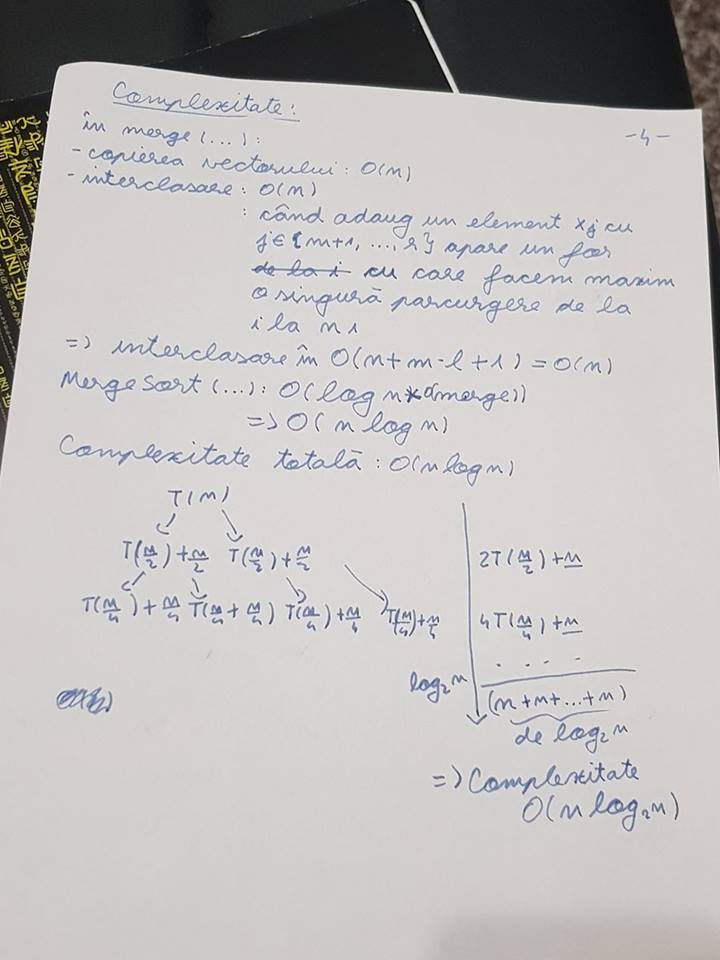 Complexitate:
-4-
în merge (...):
- copierea vectorului: O(n)
- interclasare: O(n)
: când adaug un element xj cu
j∈{m+1, ..., r} apare un for
de la i cu care facem maxim
o singură parcurgere de la
i la n1
=> interclasare în O(n+m-l+1) = O(n)
MergeSort (...): O(log n * O(merge))
=> O(n log n)
Complexitate totală: O(n log n)
T(n)
T(n/2) + n/2 T(n/2) + n/2
2T(n/2) + n
T(n/4) + n/4 T(n/4 + n/4) T(n/4) + n/4 T(n/4) + n/4
4T(n/4) + n
. . . .
log₂n
(n+n+...+n)
de log₂n
=> Complexitate
O(n log₂n)